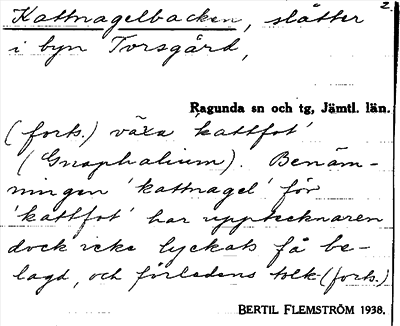 2
Kattnagelbacken, slåtter
i byn Torsgård,
Ragunda sn och tg, Jämtl. län.
(forts.) växa 'kattfot'
(Gnaphalium). Benäm-
ningen 'kattnagel' för
'kattfot' har upptecknaren
dock icke lyckats få be-
lagd, och förledens tolk (forts.)
BERTIL FLEMSTRÖM 1938.